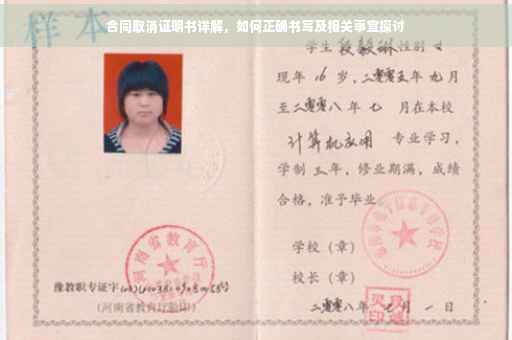 样本
合同取消证明书详解，如何正确书写及相关事宜探讨
学生段毅琳性别女
现年16岁，二零零五年九月
至二零零八年七月在本校
计算机应用 专业学习，
学制三年，修业期满，成绩
合格，准予毕业。
学校（章）
校长（章）
二零零八年七月一日
河南省教育厅
豫教职专证字
（河南省教育厅验印）